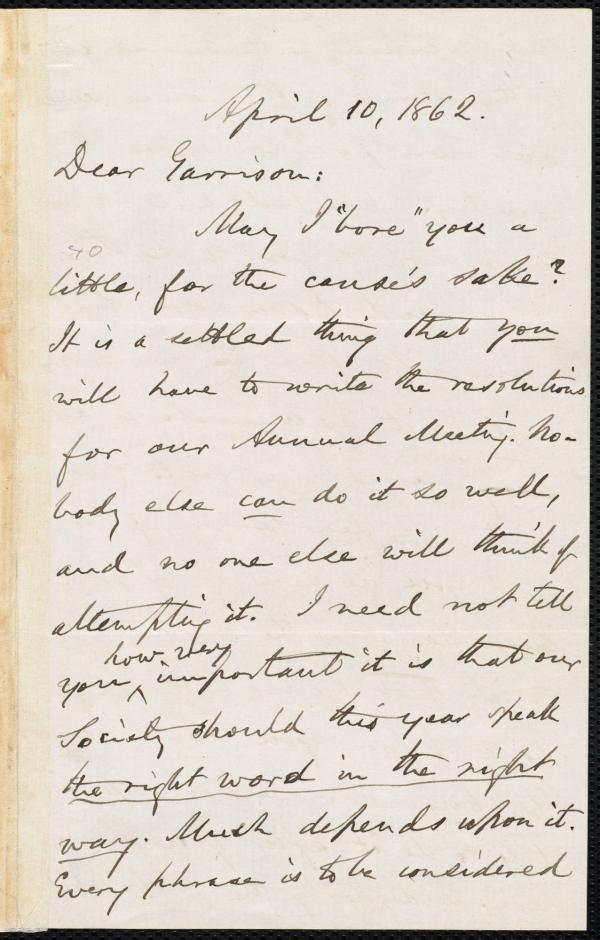 April 10, 1862.
Dear Garrison:
May I "bore" you a
40
little, for the cause's sake?
It is a settled thing that you
will have to write the resolutions
for our Annual Meeting. No-
body else can do it so well,
and no one else will think of
attempting it. I need not tell
how very
you ^ important it is that our
Society should this year speak
the right word in the right
way. Much depends upon it.
Every phrase is to be considered